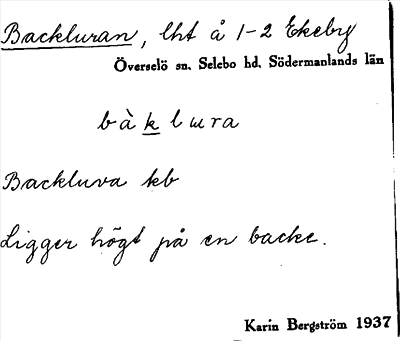 Backluran, lht å 1-2 Ekeby
Överselö sn. Selebo hd. Södermanlands län
bàk̲lɯra
Backluva kb
Ligger högt på en backe.
Karin Bergström 1937